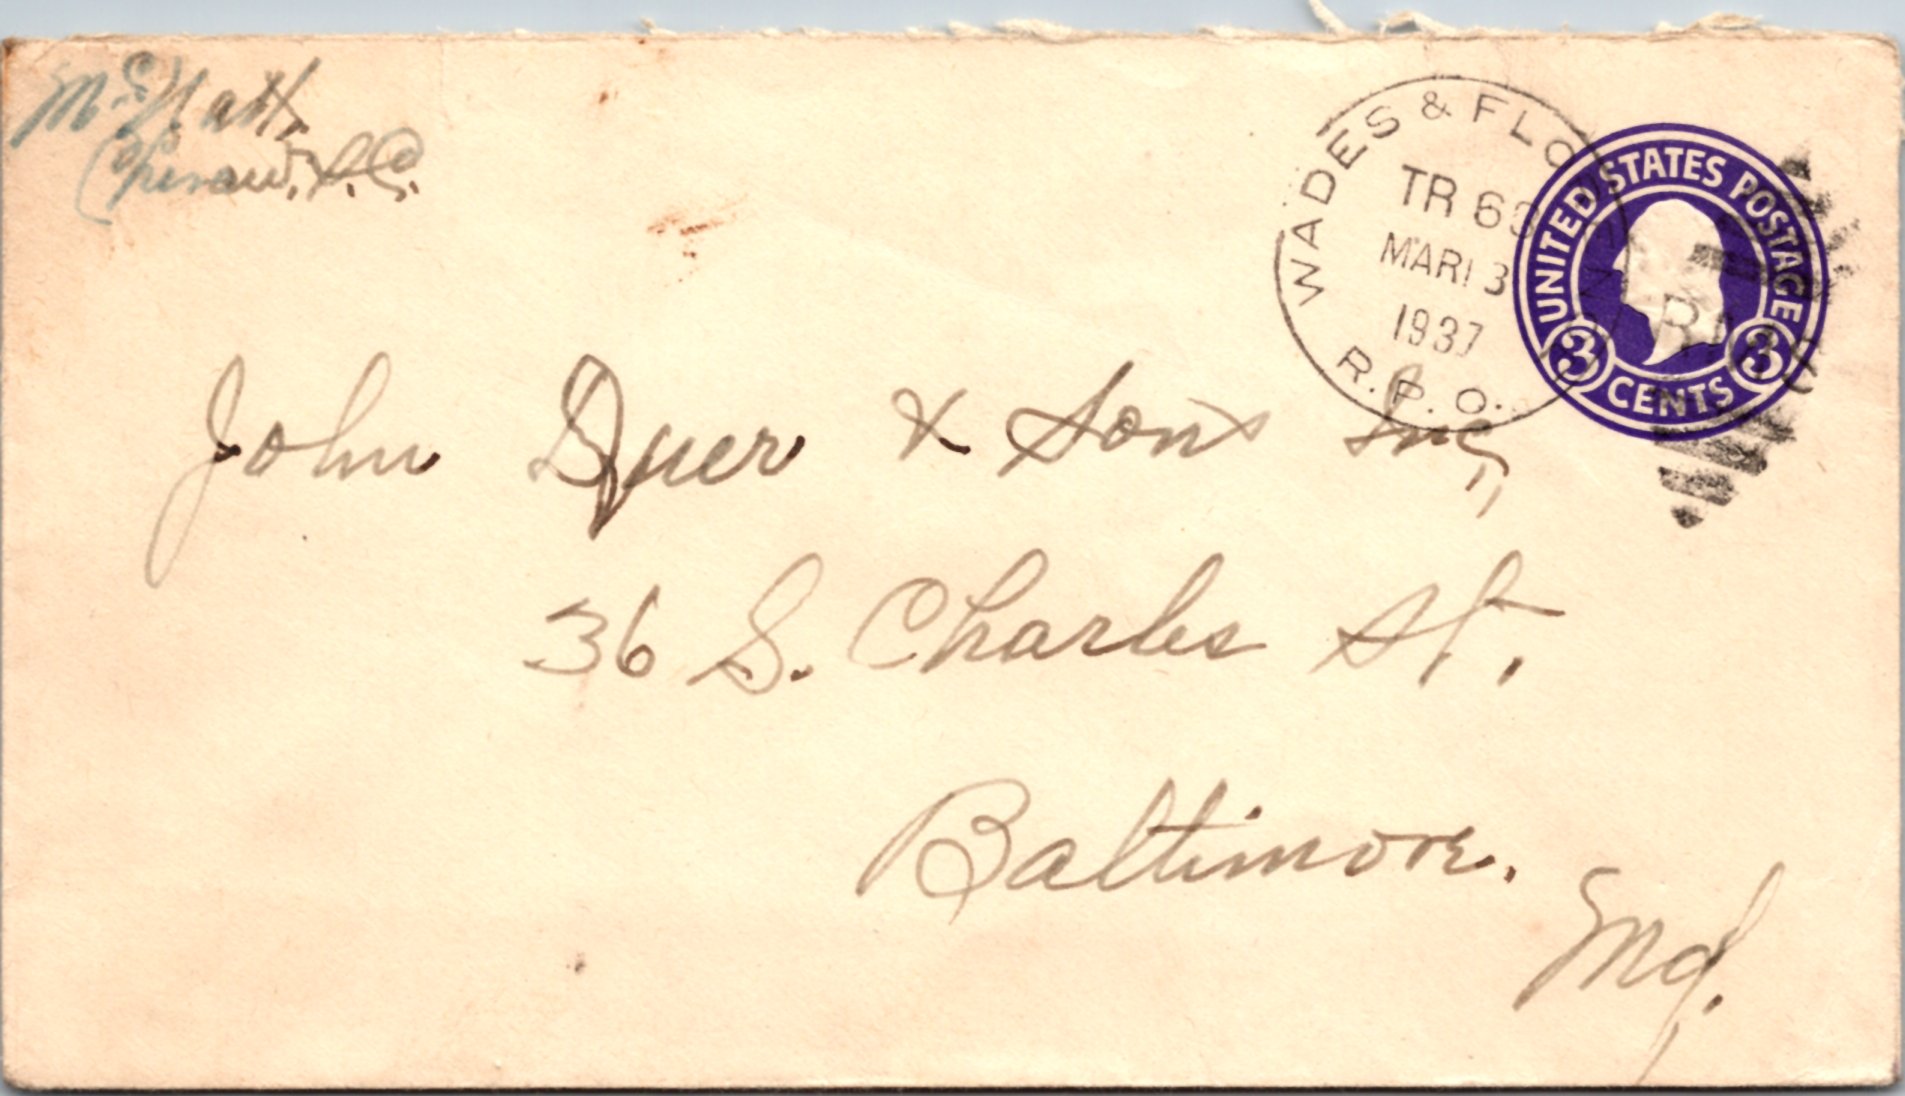 McNatt,
Cheraw, S.C.
WADES & FLO
TR 6
MAR 13
1937
R.P.O.
UNITED STATES POSTAGE
3 CENTS 3
John Dyer & Sons Inc,
36 S. Charles St.
Baltimore.
Md.